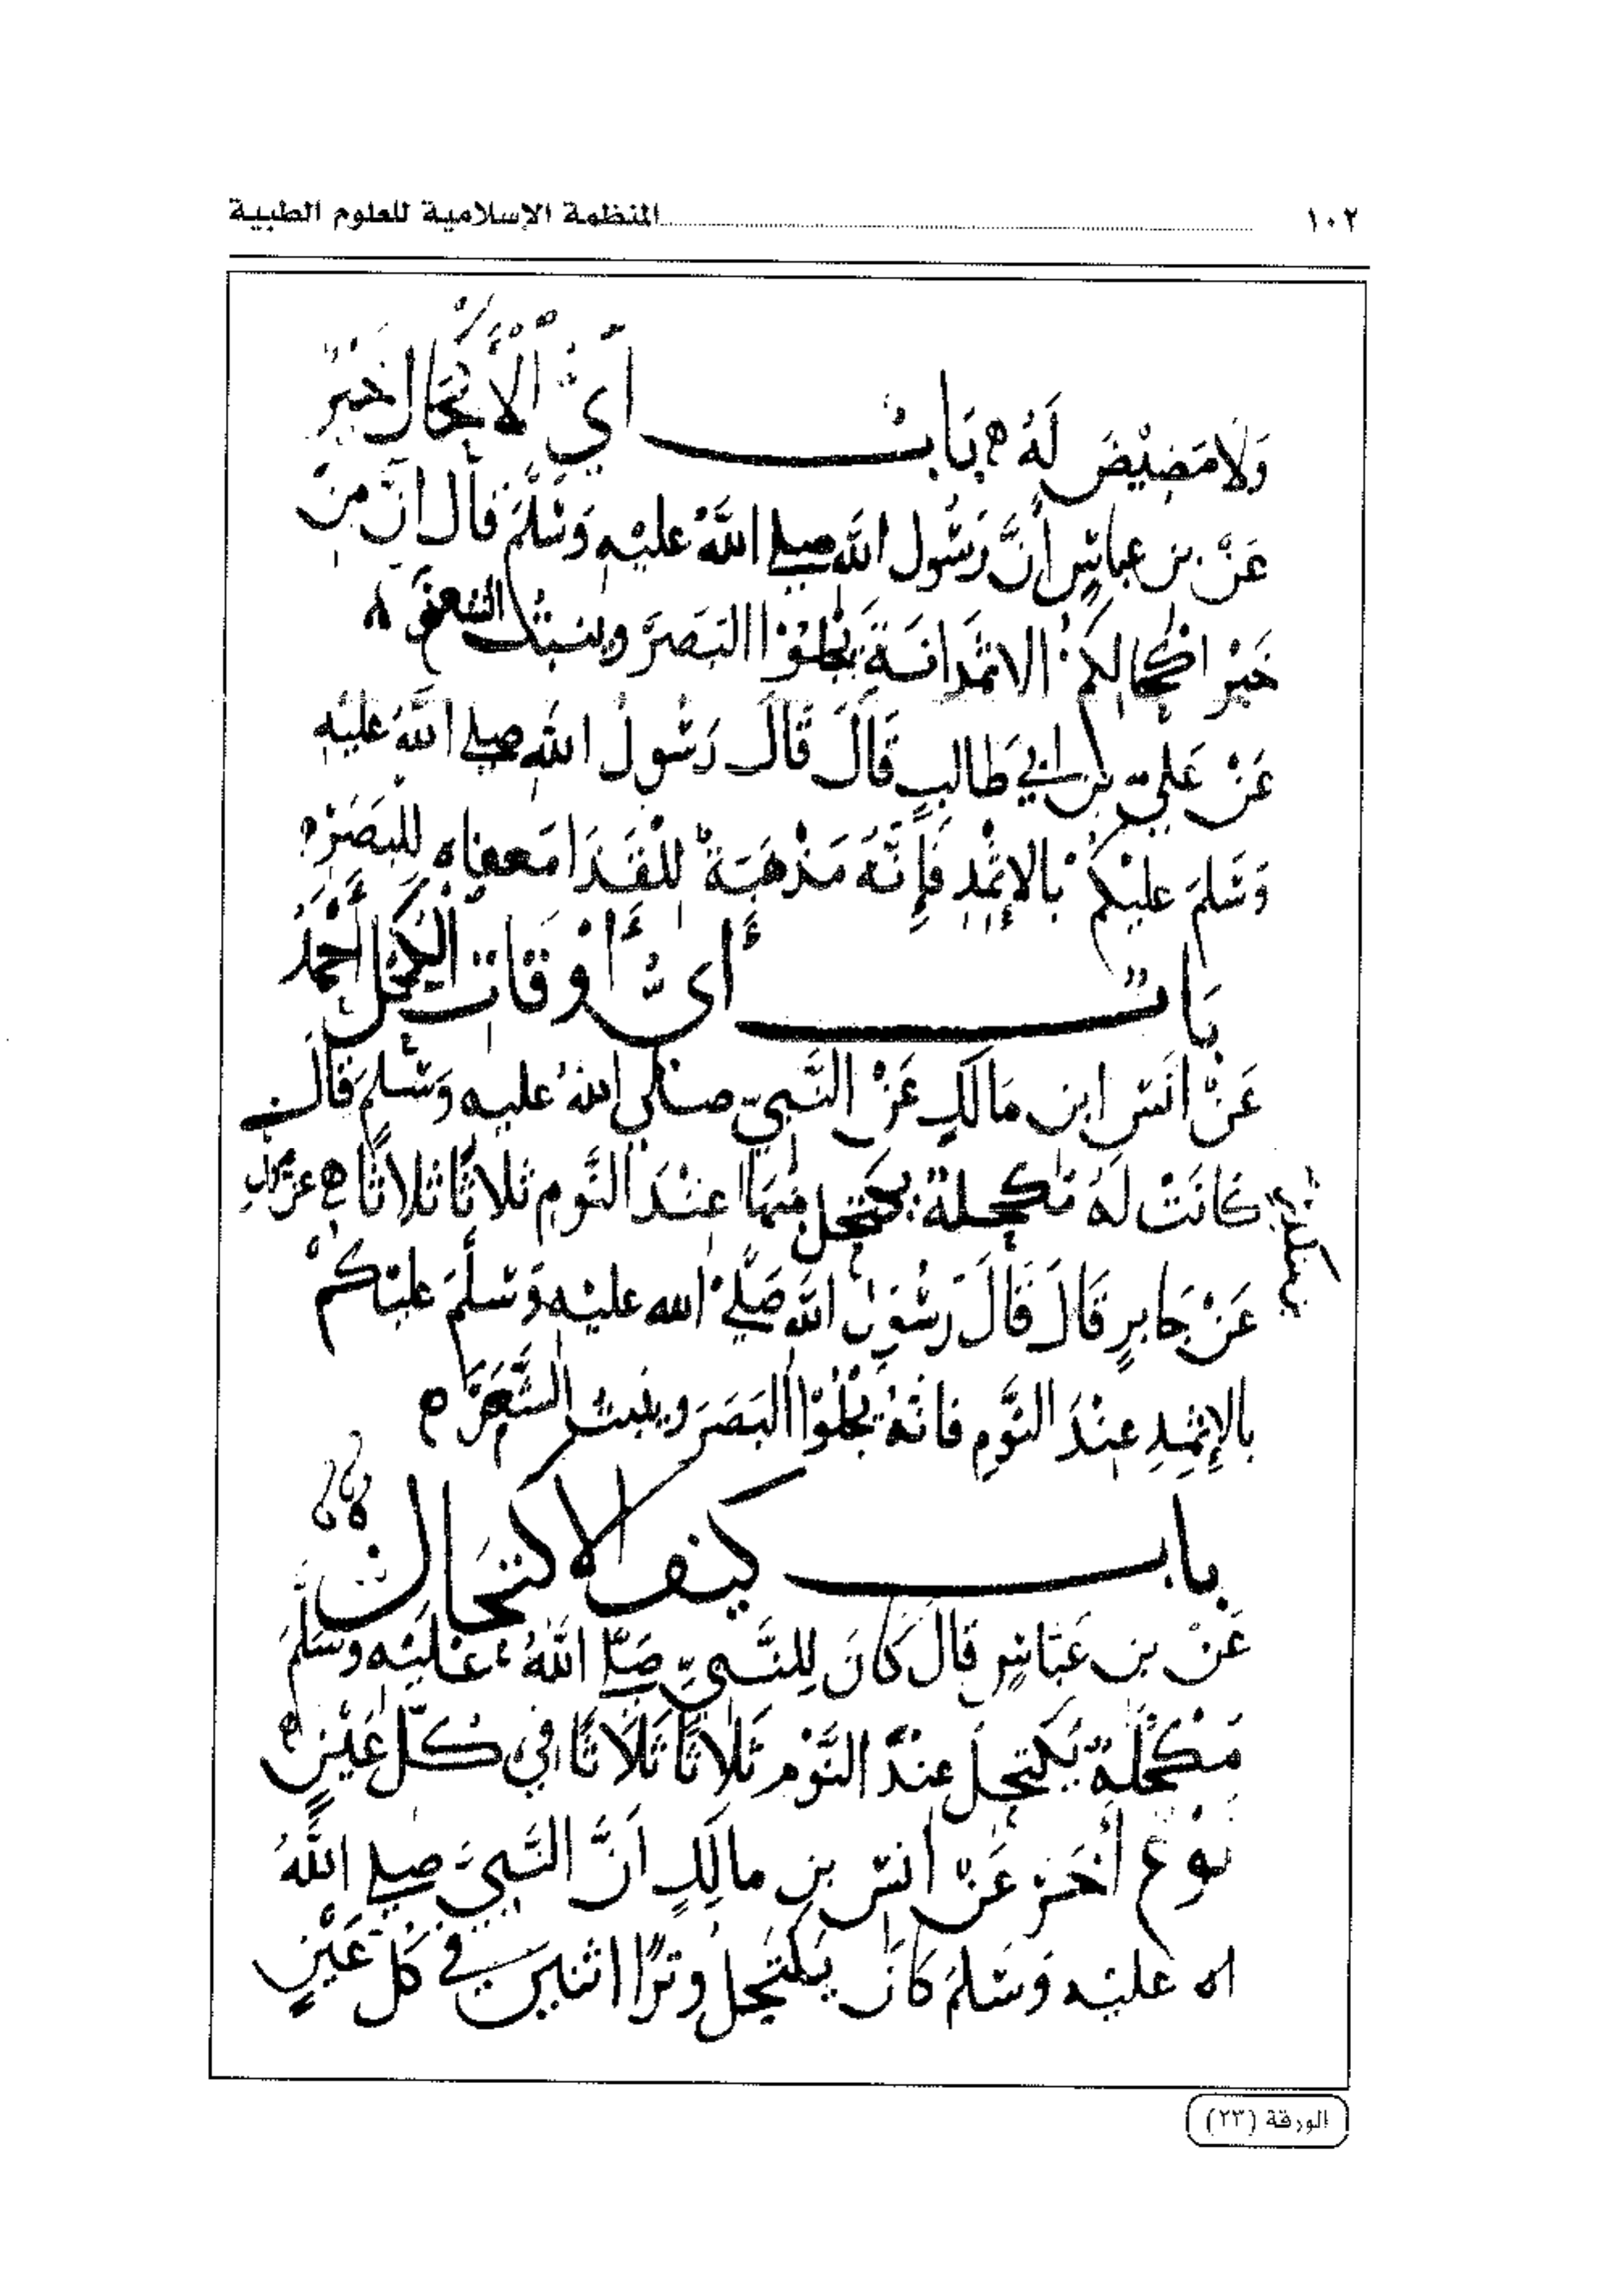 ١٠٢ المنظمة الإسلامية للعلوم الطبية
وَلَا مَضِيْضَ لَهُ بَابٌ أيُّ الْأَكْحَالِ خَيْرٌ
عَنْ بن عباسٍ أنَّ رَسُول اللَّه صلى اللَّهُ عليْهِ وَسَلَّمَ قال انَّ مِنْ
خَيْرِ اكْحَالِكُمْ الاثْمَدَ انَهُ يَجْلُوْا البَصَرَ وينبتُ الشعَرَ
عَنْ عَليّ بن ابي طَالبٍ قَالَ قَالَ رَسُولُ اللَّهِ صلى اللَّهُ عليْهِ
وَسَلمَ عليْكُمْ بالإثْمِدِ فَإِنَّهُ مَذْهَبَةٌ لِلْقَذَا للبَصَرْ
بَابٌ أَىُّ أَوْقَات الكُحْل أَحْمَدُ
عَنْ انَس ابن مَالكٍ عَنْ النَّبيّ صلي اللَّهُ عليه وَسَلمَ قال
كَانَتْ لَهُ مُكحلة يكتحل مِنْهَا عِنْدَ النَّوم ثلاثًا ثلاثًا
عَنْ جَابرٍ قَالَ قَالَ رَسُوَل اللَّه صَلَّى الله عليْهِ وَسَلَّمَ عليْكُمْ
بالإثمِدِ عِنْدَ النَّوْمِ فانَّهُ يَجْلُوْا البَصَرَ وينبت الشَّعَرَ
باب كيف الاكتحال
عَنْ بن عَبّاسٍ قال كَانَ لِلنَّبيّ صَلّى اللَّهُ عَليْه وسَلَّمَ
مَكْحُلَةٌ يَكْتحِلُ عِندَ النَّوْم ثَلاثًا ثَلَاثًا في كُلّ عَيْنٍ
نَوْع أخَرْ عَنْ انس بن مالِكٍ اَنَّ النَّبيَّ صلى اللَّهُ
عليْه وَسَلمَ كانَ يَكتَحِلُ وترًا اثنين في كل عَيْنٍ
الورقة (٢٣)